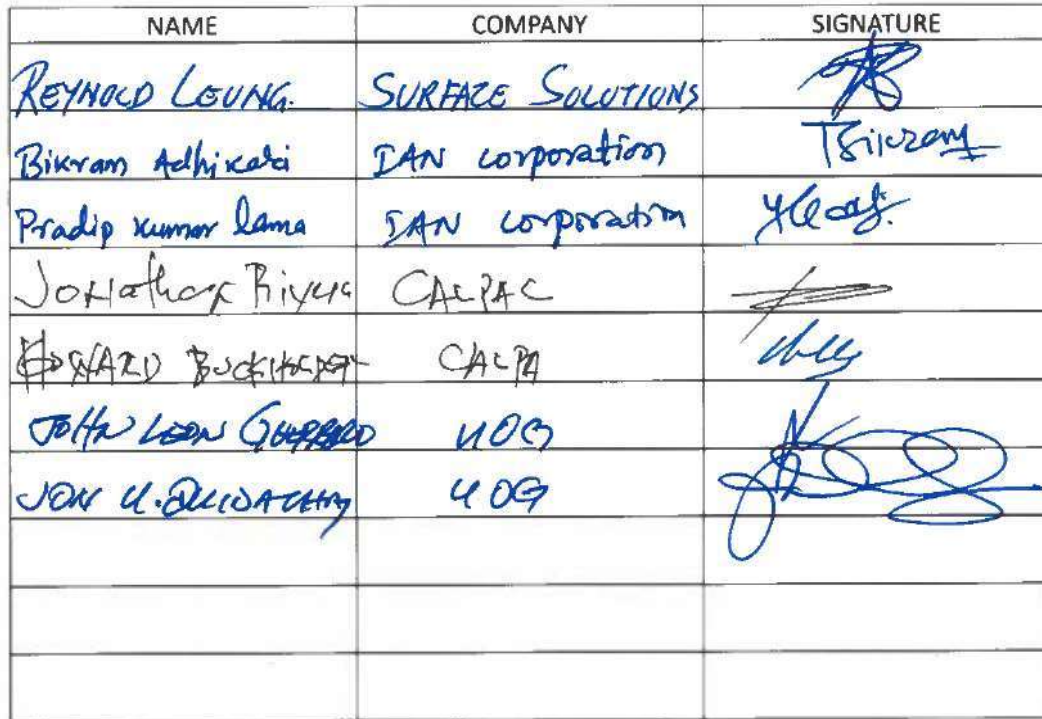 NAME COMPANY SIGNATURE
REYNOLD LEUNG. SURFACE SOLUTIONS
Bikram Adhikari IAN corporation
Pradip kumar lama IAN corporation
Jonathan CALPAC
CALPA
JOHN LEON GUERRERO UOG
JON U. UOG